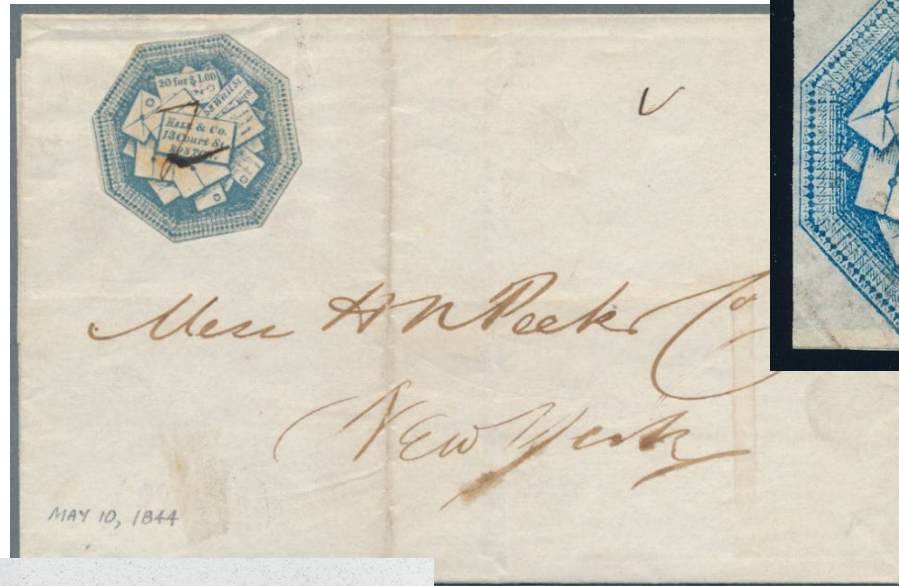 20 for $1.00
Wall St
HALE & Co.
13 Court St
BOSTON
Mess H N Peek & Co
New York
MAY 10, 1844